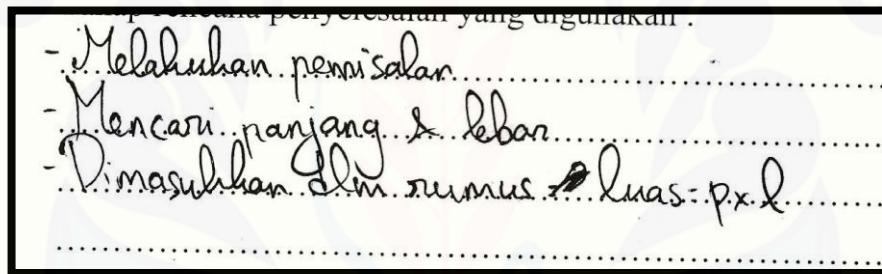 rencana penyelesaian yang digunakan :
- Melakukan pemisalan
- Mencari panjang & lebar
- Dimasukkan dlm rumus luas = p x l